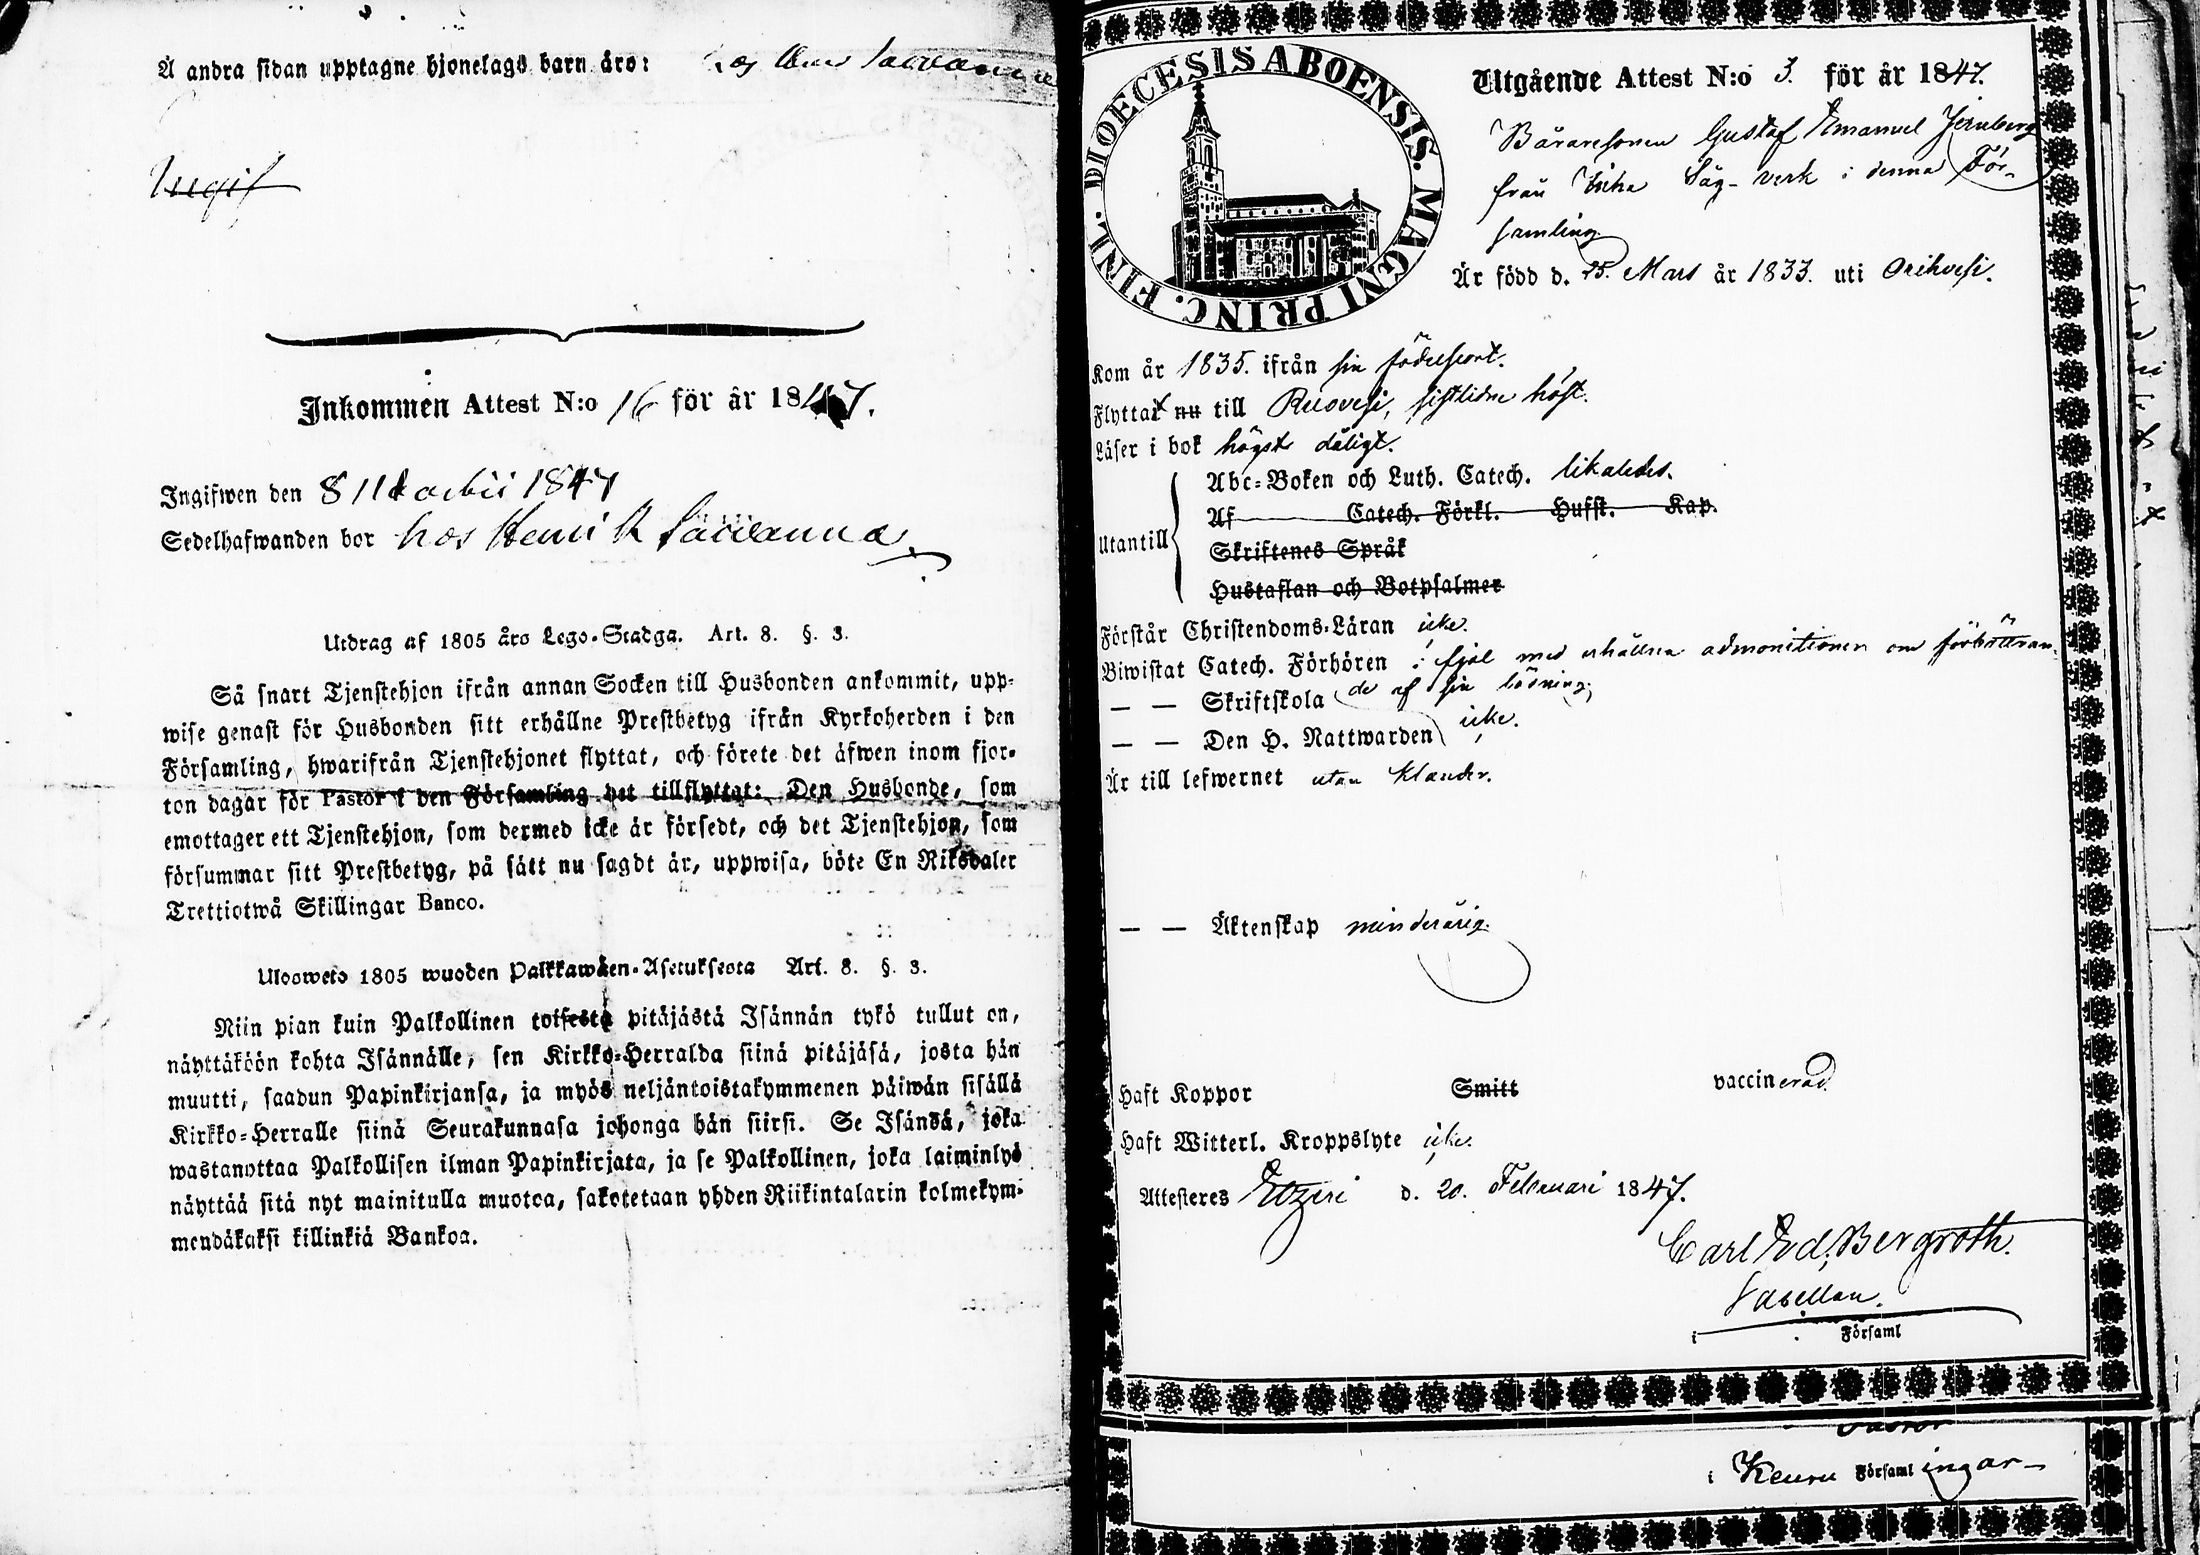 Å andra sidan upptagne hjonelags barn äro:
Ingif
Inkommen Attest N:o 16 för år 1847.
Ingifwen den 8 Martii 1847
Sedelhafwanden bor hos Henrik
Utdrag af 1805 års Lego-Stadga. Art. 8. §. 3.
Så snart Tjenstehjon ifrån annan Socken till Husbonden ankommit, upp-
wise genast för Husbonden sitt erhållne Prestbetyg ifrån Kyrkoherden i den
Församling, hwarifrån Tjenstehjonet flyttat, och förete det äfwen inom fjor-
ton dagar för Pastor i den Församling det tillflyttat: Den Husbonde, som
emottager ett Tjenstehjon, som dermed icke är försedt, och det Tjenstehjon, som
försummar sitt Prestbetyg, på sätt nu sagdt är, uppwisa, böte En Riksdaler
Trettiotwå Skillingar Banco.
Ulosweto 1805 wuoden Palkkawäen-Asetuksesta Art. 8. §. 3.
Niin pian kuin Palkollinen toisesta pitäjästä Isännän tykö tullut on,
näyttäköön kohta Isännälle, sen Kirkko-Herralda siinä pitäjäsä, josta hän
muutti, saadun Papinkirjansa, ja myös neljäntoistakymmenen päiwän sisällä
Kirkko-Herralle siinä Seurakunnasa johonga hän siirsi. Se Isändä, joka
wastanottaa Palkollisen ilman Papinkirjata, ja se Palkollinen, joka laiminlyö
näyttää sitä nyt mainitulla muotoa, sakotetaan yhden Riikintalarin kolmekym-
mendäkaksi killinkiä Bankoa.
DIOECESIS ABOENSIS. MAGNI PRINC. FINL.
Utgående Attest N:o 3. för år 1847.
Bäraresonen Gustaf Emanuel Jernberg
från Inha Såg-verk i denna För-
samling
Är född d. 25. Mars år 1833. uti Orihvesi.
Kom år 1835. ifrån sin födelseort.
Flyttat nu till Ruovesi, sistlidne höst.
Läser i bok högst dåligt.
Utantill
Abc-Boken och Luth. Catech. likaledes.
Af Catech. Förkl. Husst. Kap.
Skriftenes Språk
Hustaflan och Botpsalmer
Förstår Christendoms-Läran icke.
Biwistat Catech. Förhören i fjol med erhållna admonitioner om förbättran-
— — Skriftskola de af sin läsning,
— — Den H. Nattwarden icke.
Är till lefwernet utan klander.
— — Äktenskap minderårig.
Haft Koppor Smitt vaccinerad.
Haft Witterl. Kroppslyte icke.
Attesteres Etzeri d. 20. Februari 1847.
Carl Ed. Bergroth.
Sacellan.
i Församl
Pastor
i Keuru Församlingar